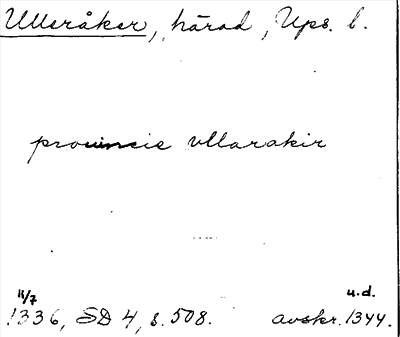 Ulleråker, härad, Ups. l.
prouincie vllarakir
11/7 u.d.
1336, SD 4, s. 508. avskr. 1344.